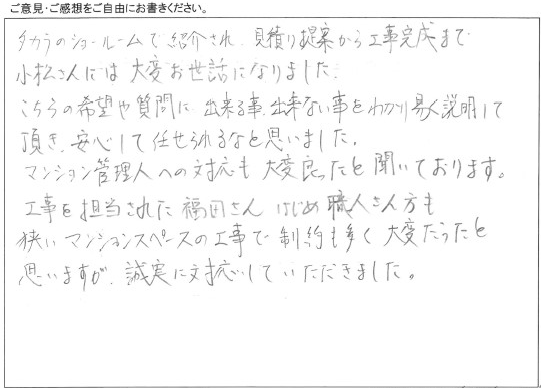 ご意見・ご感想をご自由にお書きください。
タカラのショールームで紹介され、見積り提案から工事完成まで
小松さんには大変お世話になりました。
こちらの希望や質問に、出来る事、出来ない事をわかり易く説明して
頂き、安心して任せられるなと思いました。
マンション管理人への対応も大変良ったと聞いております。
工事を担当された福田さんはじめ職人さん方も
狭いマンションスペースの工事で制約も多く大変だったと
思いますが、誠実に対応していただきました。